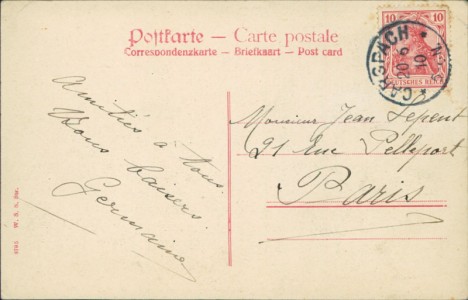 Postkarte — Carte postale
Correspondenzkarte — Briefkaart — Post card
10 10
DEUTSCHES REICH
CARSPACH
20 6
10
Amitiés à tous.
Bons baisers.
Germaine
Monsieur Jean Lepent
21 Rue Pelleport
Paris
W. S. u. Str.